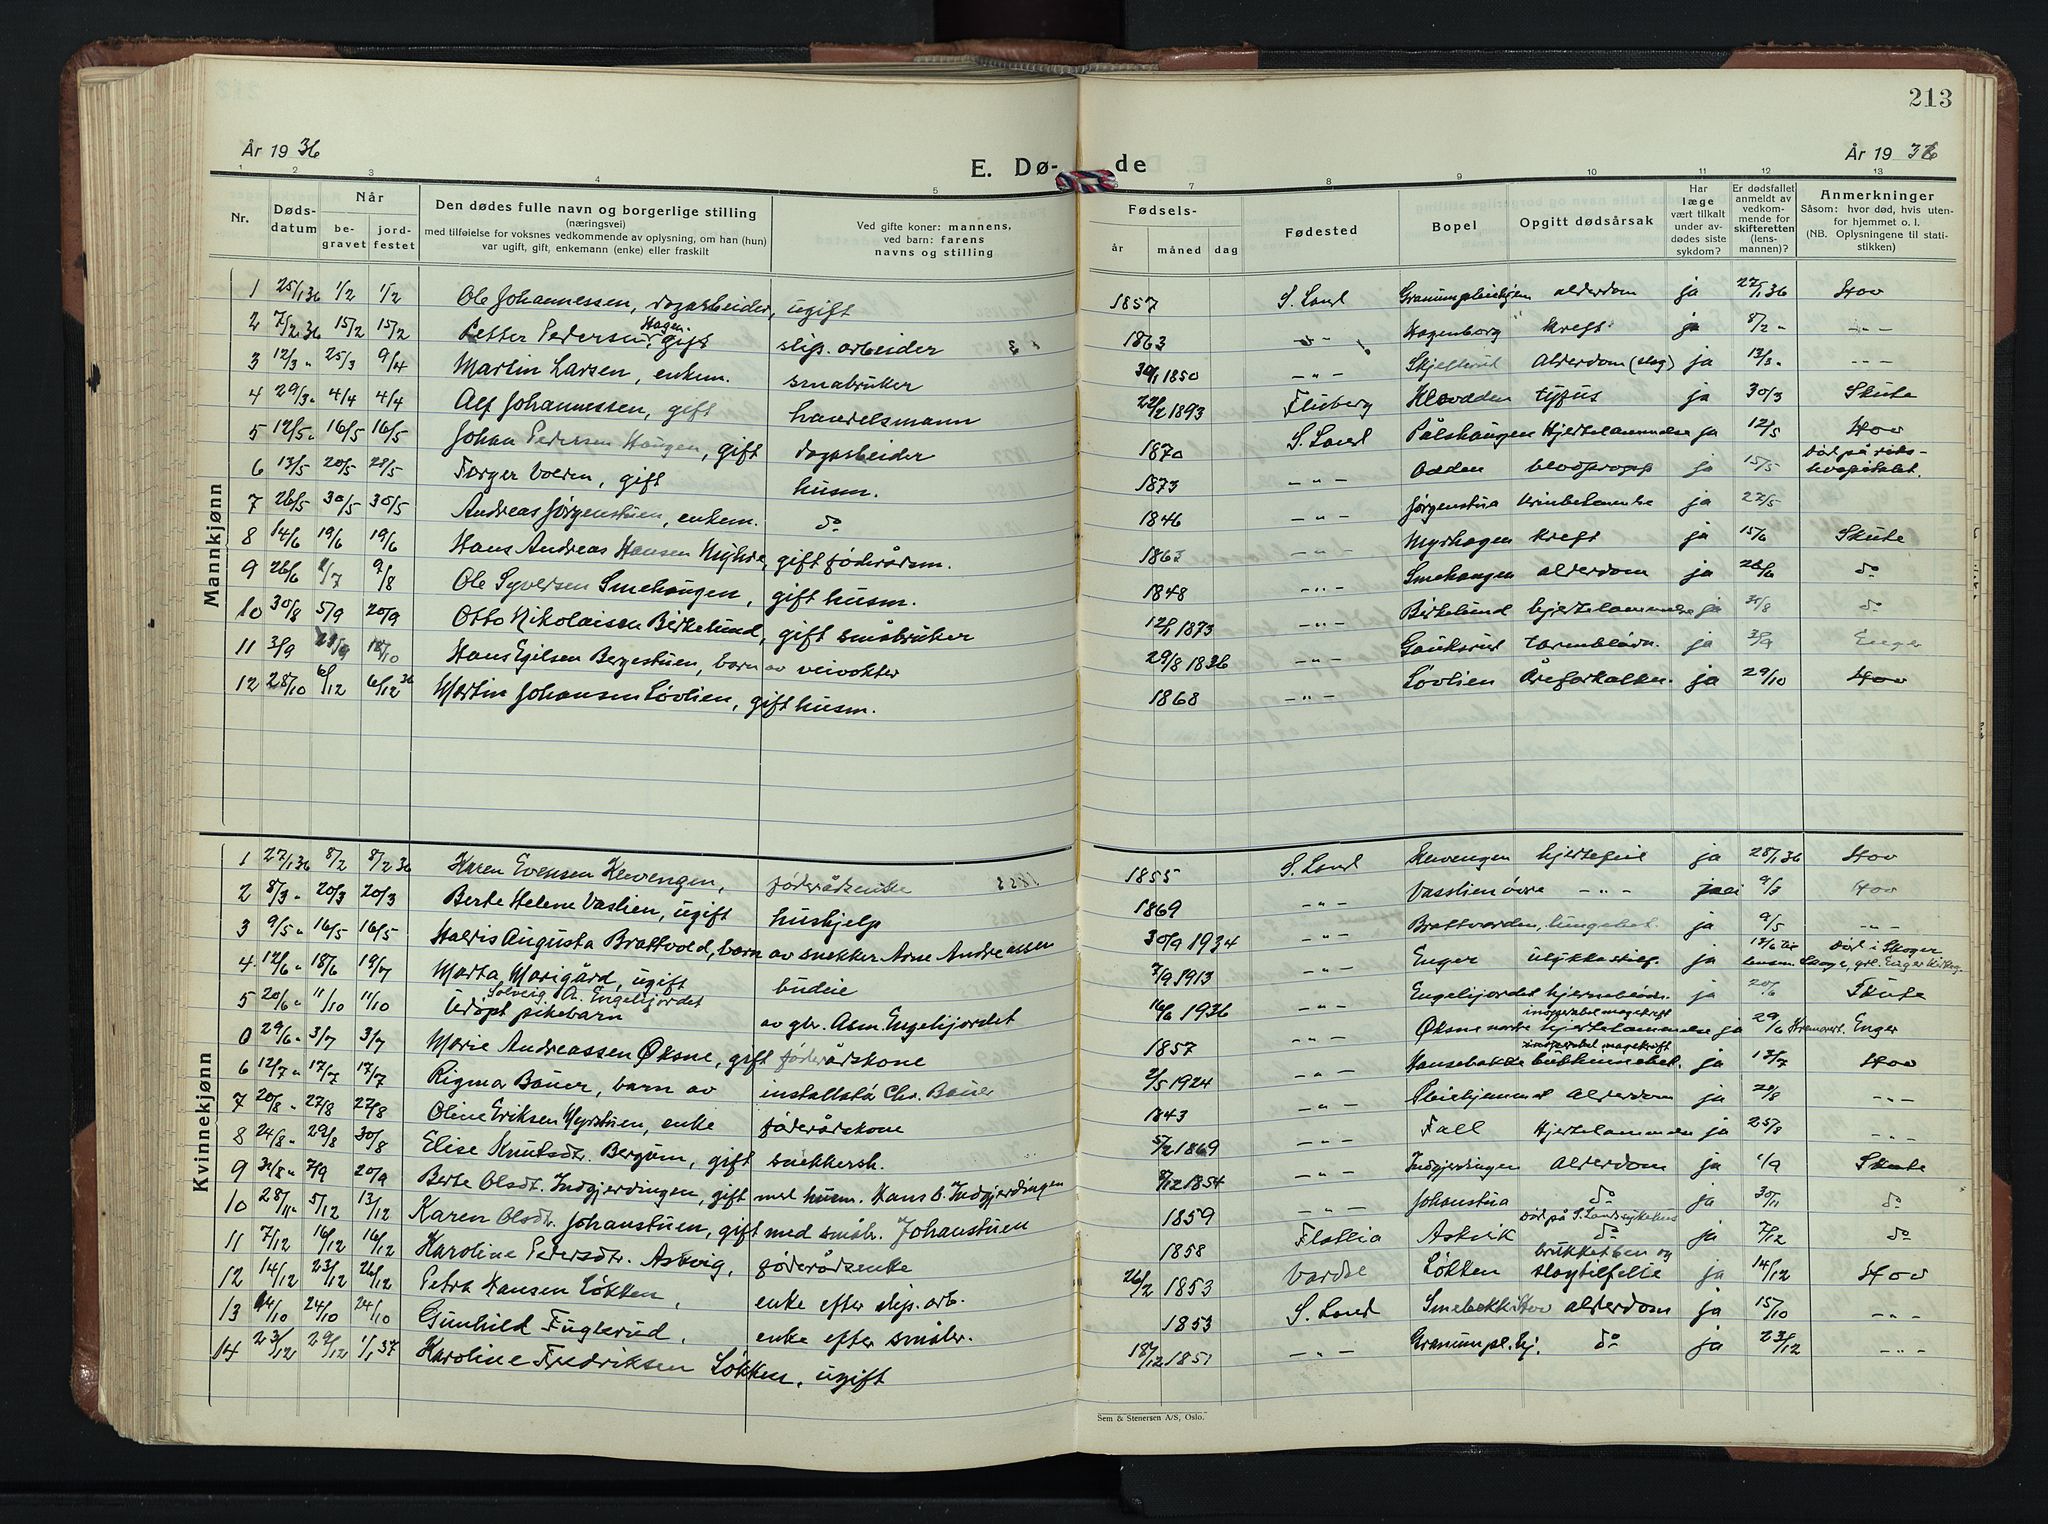 213
År 1936
E. Dø- de
År 1936
1 2 3 4 5 6 7 8 9 10 11 12 13
Nr.
Døds-
datum
Når
be-
gravet
jord-
festet
Den dødes fulle navn og borgerlige stilling
(næringsvei)
med tilføielse for voksnes vedkommende av oplysning, om han (hun)
var ugift, gift, enkemann (enke) eller fraskilt
Ved gifte koner: mannens,
ved barn: farens
navns og stilling
Fødsels-
år måned dag
Fødested
Bopel
Opgitt dødsårsak
Har
læge
vært tilkalt
under av-
dødes siste
sykdom?
Er dødsfallet
anmeldt av
vedkom-
mende for
skifteretten
(lens-
mannen)?
Anmerkninger
Såsom: hvor død, hvis uten-
for hjemmet o. l.
(NB. Oplysningene til stati-
stikken)
Mannkjønn
1 25/1 36 1/2 1/2 Ole Johannessen, dagarbeider, ugift 1857 S. Land Granumpleiehjem alderdom ja 27/1 36 Hov
2 7/2 36 15/2 15/2 Petter Pedersen Hagen, gift slip. arbeider 1863 -"- Hagenborg kreft ja 8/2 " -"-
3 12/3 " 25/3 9/4 Martin Larsen, enkem. småbruker 30/1 1850 -"- Skjelterud Alderdom (slag) ja 13/3 " -"-
4 29/3 " 4/4 4/4 Alf Johannessen, gift handelsmann 22/2 1893 Fluberg Klodden tyfus ja 30/3 Skute
5 12/5 " 16/5 16/5 Johan Pedersen Haugen, gift dagarbeider 1870 S. Land Pålshaugen Hjertelammelse ja 12/5 Hov
6 13/5 20/5 28/5 Torger Voldn, gift husm. 1873 -"- Odden blodpropp ja 15/5 Død på riks-
hospitalet.
7 26/5 30/5 30/5 Andreas Jørgenstuen, enkem. do 1846 -"- Jørgenstua Urinbelammelse ja 27/5
8 14/6 19/6 19/6 Hans Andreas Hansen Myhre, gift føderådsm. 1863 -"- Myrhagen kreft ja 15/6 Skute
9 26/6 2/7 9/8 Ole Syversen Smehaugen, gift husm. 1848 -"- Smehaugen alderdom ja 28/6 do
10 30/8 5/9 20/9 Otto Nikolaisen Birkelund, gift småbruker 12/1 1873 -"- Birkelund hjertelammelse ja 31/8 do
11 3/9 23/9 18/10 Hans Egilsen Bergestuen, barn av veivokter 29/8 1936 -"- Gaukerud tarmblødn. ja 3/9 Enger
12 28/10 6/12 6/12 36 Martin Johansen Løvlien, gift husm. 1868 -"- Løvlien Åreforkalkn. ja 29/10 Hov
Kvinnekjønn
1 27/1 36 8/2 8/2 36 Karen Evensen Klevengen, føderådsenke 1855 S. Land Klevengen hjertefeil ja 28/1 36 Hov
2 8/3 " 20/3 20/3 Berte Helene Vaslien, ugift hushjelp 1869 -"- Vasslien øvre -"- 9/3 Hov
3 9/5 " 16/5 16/5 Haldis Augusta Brattvold, barn av snekker Arne Andreassen 30/9 1934 -"- Brattvorden lungebet. ja 9/5 -"-
4 12/6 " 18/6 19/7 Marta Marigård, ugift budeie 7/9 1913 -"- Enger ulykkestilf. ja 13/6 Død i Skoger
5 20/6 " 11/10 11/10 Udøpt pikebarn Solveig A. Engelijordet av gbr. Asm. Engelijordet 16/6 1936 -"- Engelijordet hjerneblødn. ja 20/6 Skute
0 29/6 " 3/7 3/7 Marie Andreassen Øksne, gift føderådskone 1857 -"- Øksne nordre inoperabel magekreft hjertelammelse ja 29/6 Enger
6 12/7 " 17/7 17/7 Rigmor Bauer, barn av installatør Chr. Bauer 2/5 1924 -"- Hansebakke bukhinnebet. ja 13/7 Hov
7 20/8 " 27/8 27/8 Oline Eriksen Myrstuen, enke føderådskone 1843 -"- Pleiehjemmet Alderdom ja 20/8 -"-
8 24/8 " 29/8 30/8 Elise Knutsdtr. Bergum, gift snekkersk. 5/2 1869 -"- Fall Hjertelammelse ja 25/8 -"-
9 31/8 " 7/9 20/9 Berte Olsdt. Indgjerdingen, gift med husm. Hans O. Indgjerdingen 8/12 1854 -"- Indgjerdingen Alderdom ja 1/9 Skute
10 28/11 " 5/12 13/12 Karen Olsdtr. Johanstuen, gift med småbr. Johanstuen 1859 -"- Johanstua do ja 30/11 do
11 7/12 16/12 16/12 Karoline Pedersdtr. Askvig, føderådsenke 1858 Flatlia Askvik Død på S. Land sykehus do ja 7/12 do
12 14/12 23/12 26/12 Petra Hansen Løkken, enke efter slip. arb. 26/2 1853 Vardal Løkken brukket ben og slagtilfelle ja 14/12 Hov
13 14/10 24/10 24/10 Gunhild Fuglerud, enke efter småbr. 1853 S. Land Smebekk Hov alderdom ja 15/10 -"-
14 23/12 29/12 1/1 37 Karoline Fredriksen Løkken, ugift 18/12 1851 -"- Granumpl.hj. do ja 23/12 -"-
Sem & Stenersen A/S, Oslo.